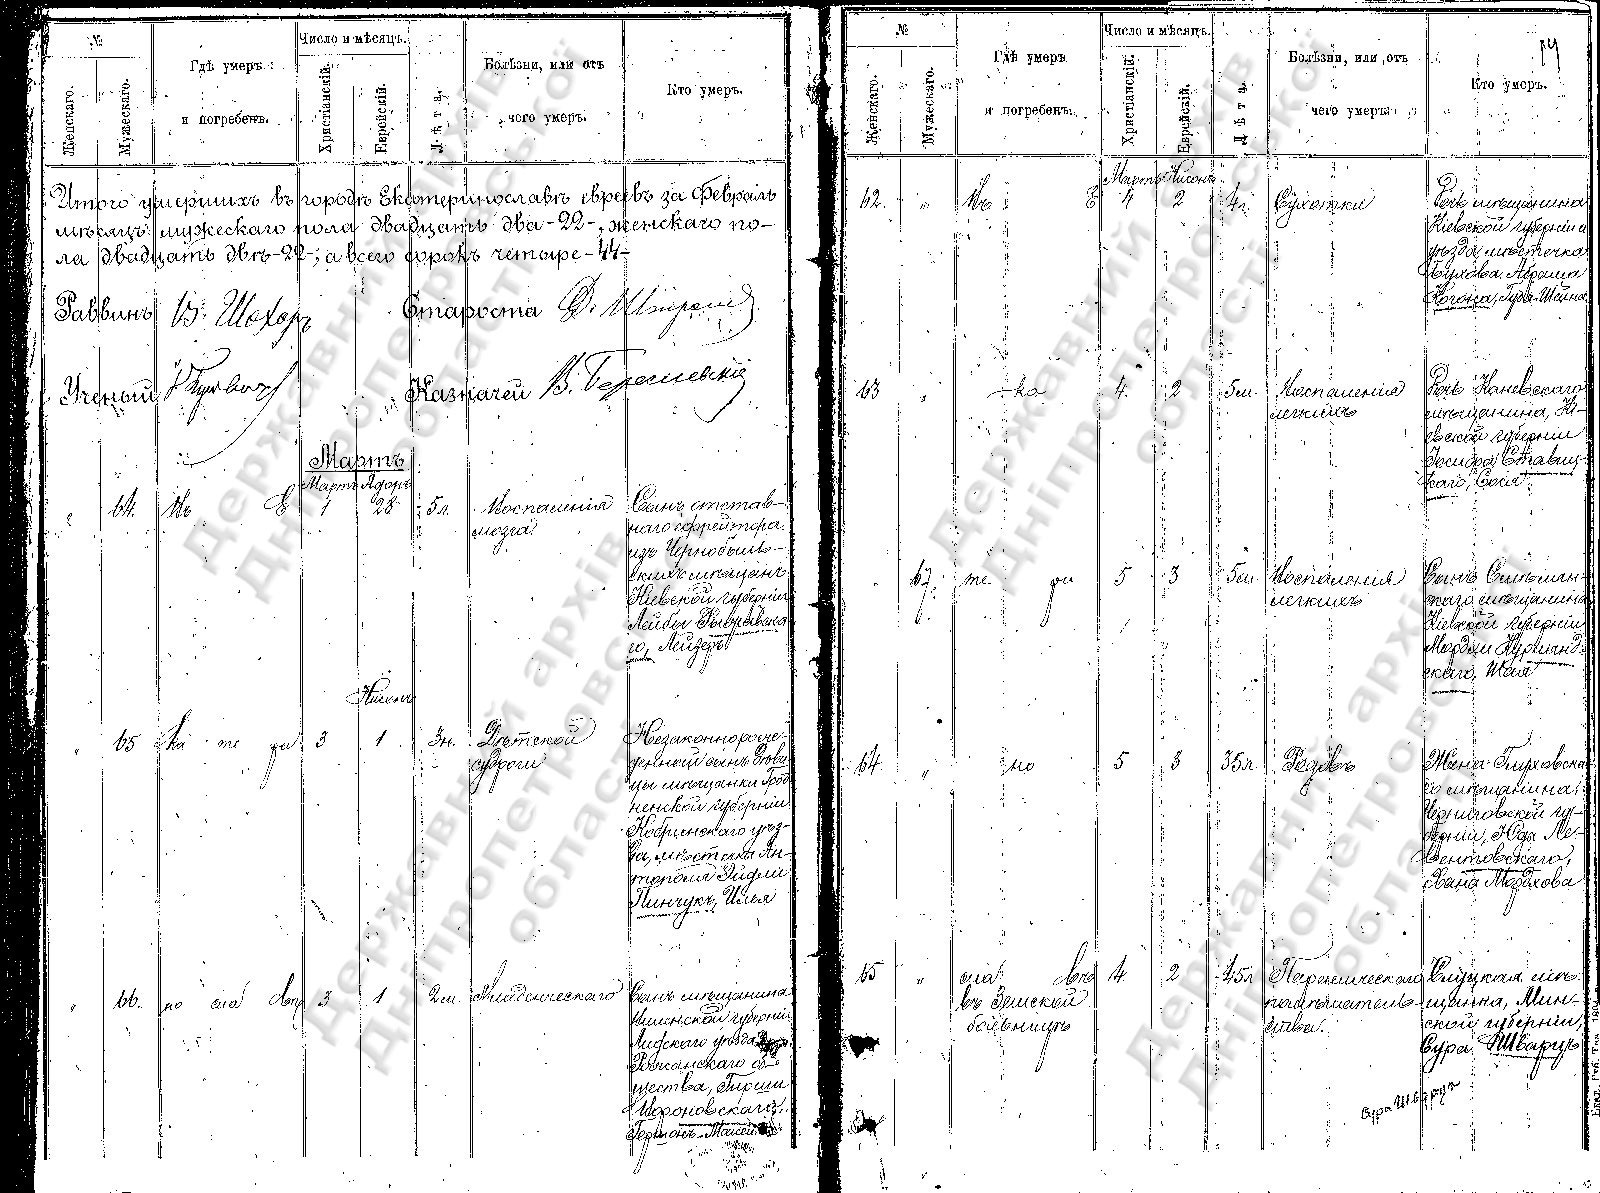 №
Женскаго.
Мужескаго.
Гдѣ умеръ
и погребенъ.
Число и мѣсяцъ.
Христіанскій.
Еврейскій.
Лѣта.
Болѣзни, или отъ
чего умеръ.
Кто умеръ.
Итого умершихъ въ городѣ Екатеринославѣ евреевъ за Февраль
мѣсяцъ: мужескаго пола двадцать два -22-, женскаго по-
ла двадцать двѣ -22-; а всего сорокъ четыре -44-
Раввинъ В. Шахоръ Староста
Ученый Казначей
Мартъ
Мартъ Адоръ
" 64. Въ Е 1 28 5 л. Воспаленія
мозга
Сынъ отстав-
наго ефрейтора
изъ Чернобыль-
скихъ мѣщанъ
Кіевской губерніи
Лейбы
го, Лейзеръ
Нисонъ
" 65 ка те ри 3 1 3 н. Дѣтской
судороги
Незаконнорож-
денный сынъ вдови-
цы мѣщанки Грод-
ненской губерніи
Кобринскаго уѣз-
да, мѣстечка Ан-
тополя Эйдли
Пинчукъ, Илья
" 66. но сла вѣ 3 1 2 м. Младенческаго
Сынъ мѣщанина
Виленской губерніи
Лидскаго уѣзда
Рожанскаго об-
щества, Гирши
Вороновскаго,
Гершонъ-Мовша
№
Женскаго.
Мужескаго.
Гдѣ умеръ
и погребенъ.
Число и мѣсяцъ.
Христіанскій.
Еврейскій.
Лѣта.
Болѣзни, или отъ
чего умеръ.
Кто умеръ.
Мартъ Нисонъ
62. " Въ Е 4 2 4 г. Сухотки
Дочь мѣщанина
Кіевской губерніи и
уѣзда, мѣстечка
Абрама
Когона, Шейна
63 " ка 4. 2 5 м. Воспаленія
легкихъ
Дочь Каневскаго
мѣщанина, Кі-
евской губерніи
Іосифа Ставиц-
каго, Сося
67. те ри 5 3 5 м. Воспаленія
легкихъ
Сынъ Смѣлян-
скаго мѣщанина
Кіевской губерніи
Мордки Курланд-
скаго, Шая
64 " но 5 3 35 л Родовъ
Жена Глуховска-
го мѣщанина,
Черниговской гу-
берніи, Юды Ле-
вентовскаго,
Хана Мордхова
65 " сла вѣ 4. 2 45 л Паралическаго
въ Земской
больницѣ
помѣшатель-
ства.
Слуцкая мѣ-
щанка, Мин-
ской губерніи,
Сура Шварцъ
Сура Шварцъ
Державний архів
Дніпропетровської
області